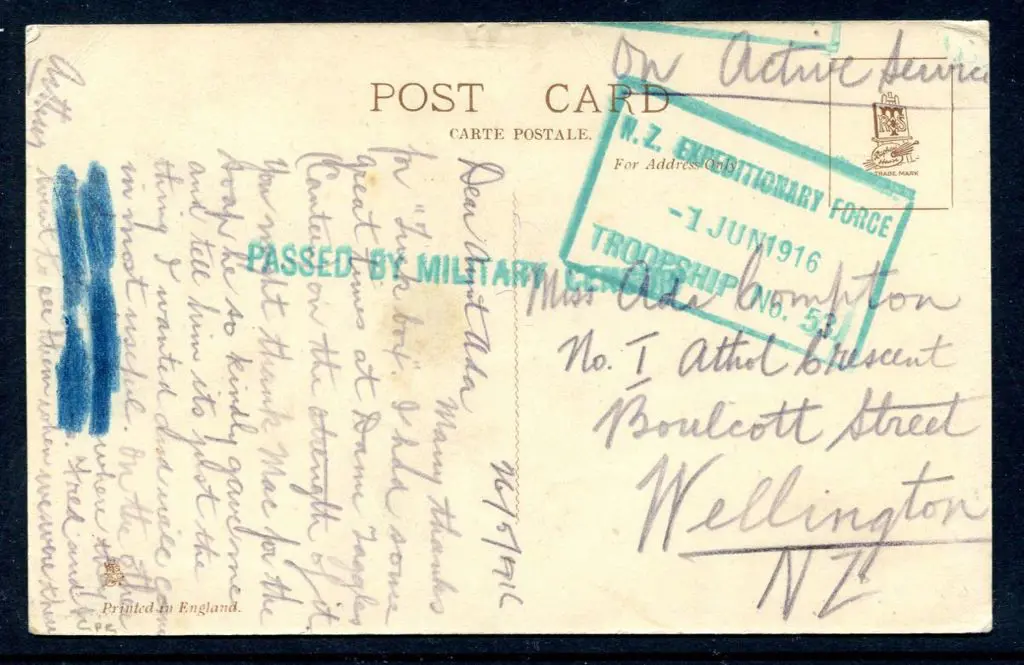 On Active Service
POST CARD
CARTE POSTALE.
For Address Only
TRADE MARK
N.Z. EXPEDITIONARY FORCE
-1 JUN 1916
TROOPSHIP No. 53
PASSED BY MILITARY CENSOR
Miss Ada Compton
No. I Athol Crescent
Boulcott Street
Wellington
NZ
Dear Aunt Ada
Many thanks
for "Tuck box". I had some
great times at Damn Taggles
Canteen on the strength of it.
You might thank Mac for the
Soap he so kindly gave me
and tell him its just the
thing I wanted and will come
in most useful. On the
where they
Fred and
went to see them when we were there
Printed in England.